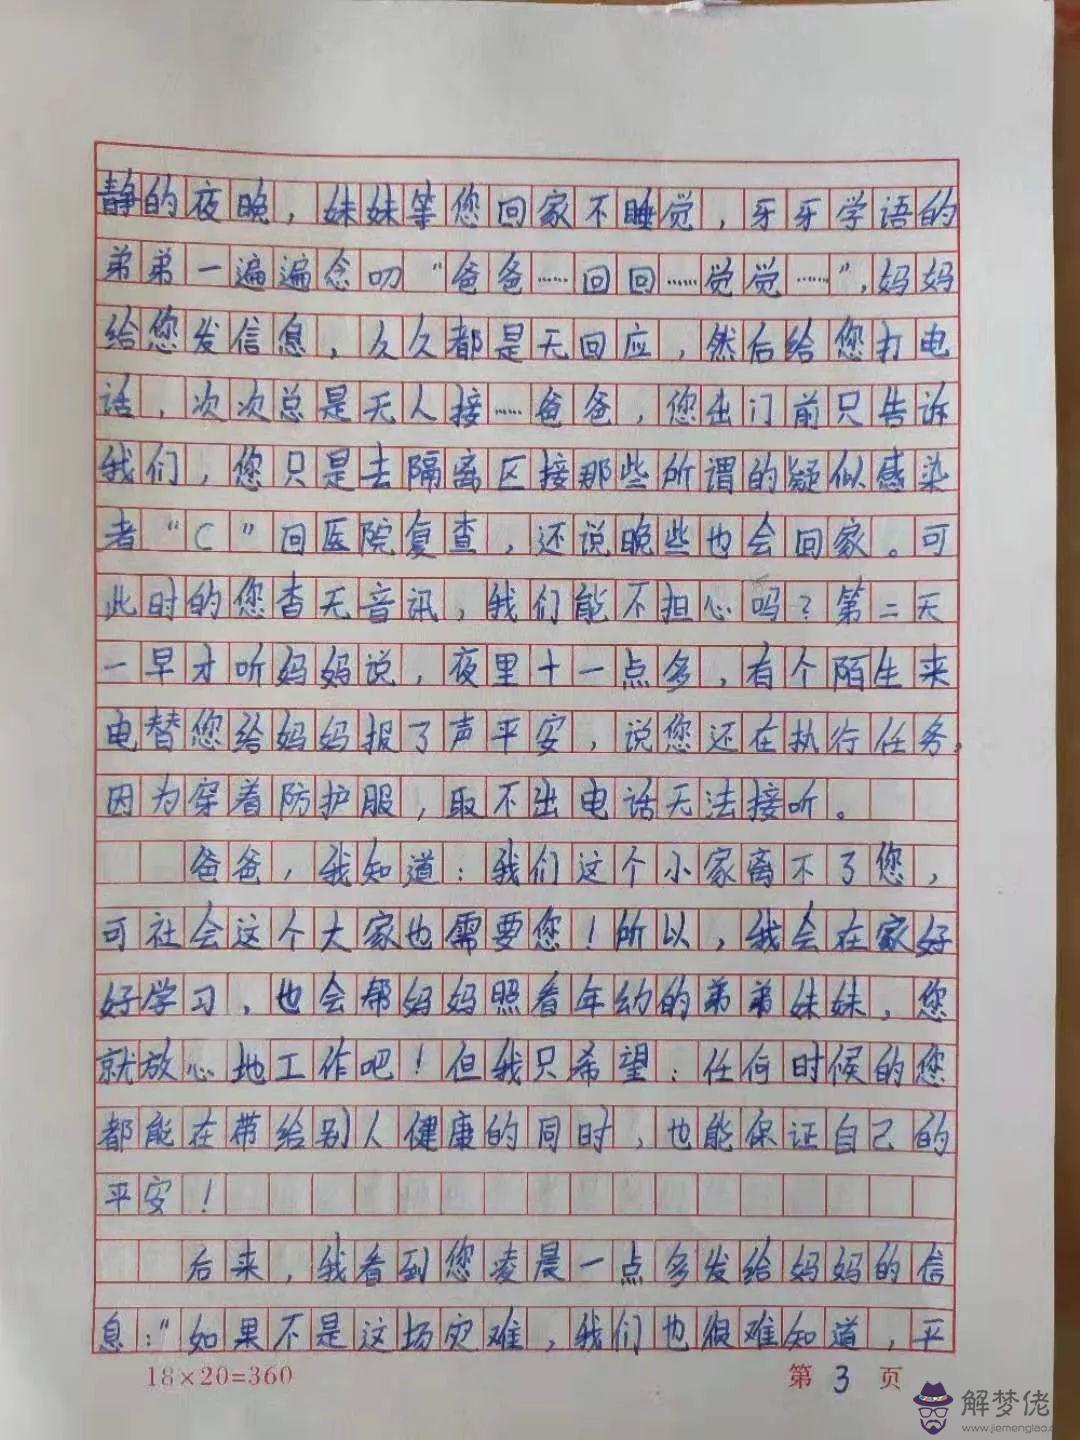 静的夜晚，妹妹等您回家不睡觉，牙牙学语的
弟弟一遍遍念叨“爸爸……回回……觉觉……”，妈妈
给您发信息，久久都是无回应，然后给您打电
话，次次总是无人接……爸爸，您出门前只告诉
我们，您只是去隔离区接那些所谓的疑似感染
者“C”回医院复查，还说晚些也会回家。可
此时的您杳无音讯，我们能不担心吗？第二天
一早才听妈妈说，夜里十一点多，有个陌生来
电替您给妈妈报了声平安，说您还在执行任务，
因为穿着防护服，取不出电话无法接听。
爸爸，我知道：我们这个小家离不了您，
可社会这个大家也需要您！所以，我会在家好
好学习，也会帮妈妈照看年幼的弟弟妹妹，您
就放心地工作吧！但我只希望：任何时候的您
都能在带给别人健康的同时，也能保证自己的
平安！
后来，我看到您凌晨一点多发给妈妈的信
息：“如果不是这场灾难，我们也很难知道，平
18×20=360
第 3 页
解梦佬
www.jiemenglao.com